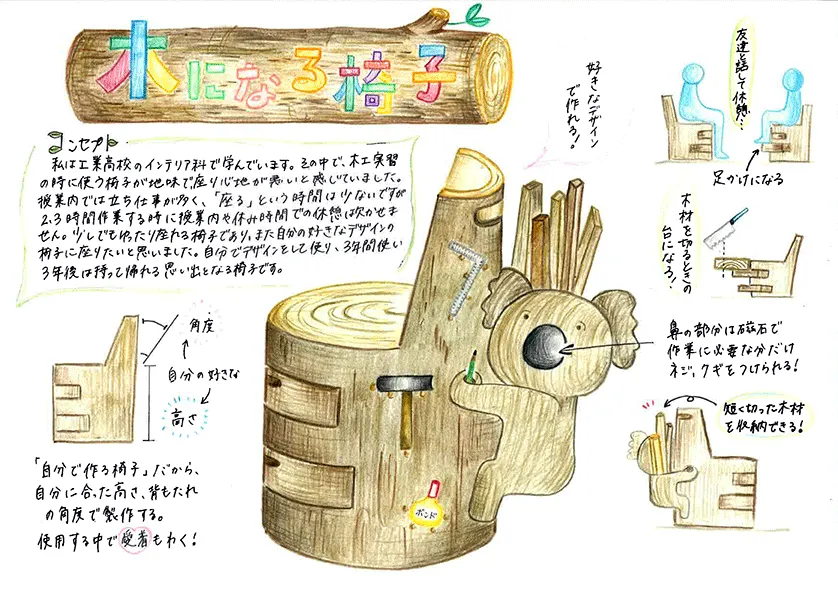 木になる椅子
コンセプト
私は工業高校のインテリア科で学んでいます。その中で、木工実習
の時に使う椅子が地味で座り心地が悪いと感じていました。
授業内では立ち仕事が多く、「座る」という時間は少ないですが
2,3時間作業する時に授業内や休み時間での休憩は欠かせま
せん。少しでもゆったり座れる椅子であり、また自分の好きなデザインの
椅子に座りたいと思いました。自分でデザインをして使り、3年間使い
3年後は持って帰れる思い出となる椅子です。
好きなデザイン
で作れる!
友達と話して休憩…
足かけになる
木材を切るときの
台になる!
鼻の部分は磁石で
作業に必要な分だけ
ネジ、クギをつけられる!
短く切った木材
を収納できる!
角度
自分の好きな
高さ
「自分で作る椅子」だから、
自分に合った高さ、背もたれ
の角度で製作する。
使用する中で愛着もわく!
ボンド